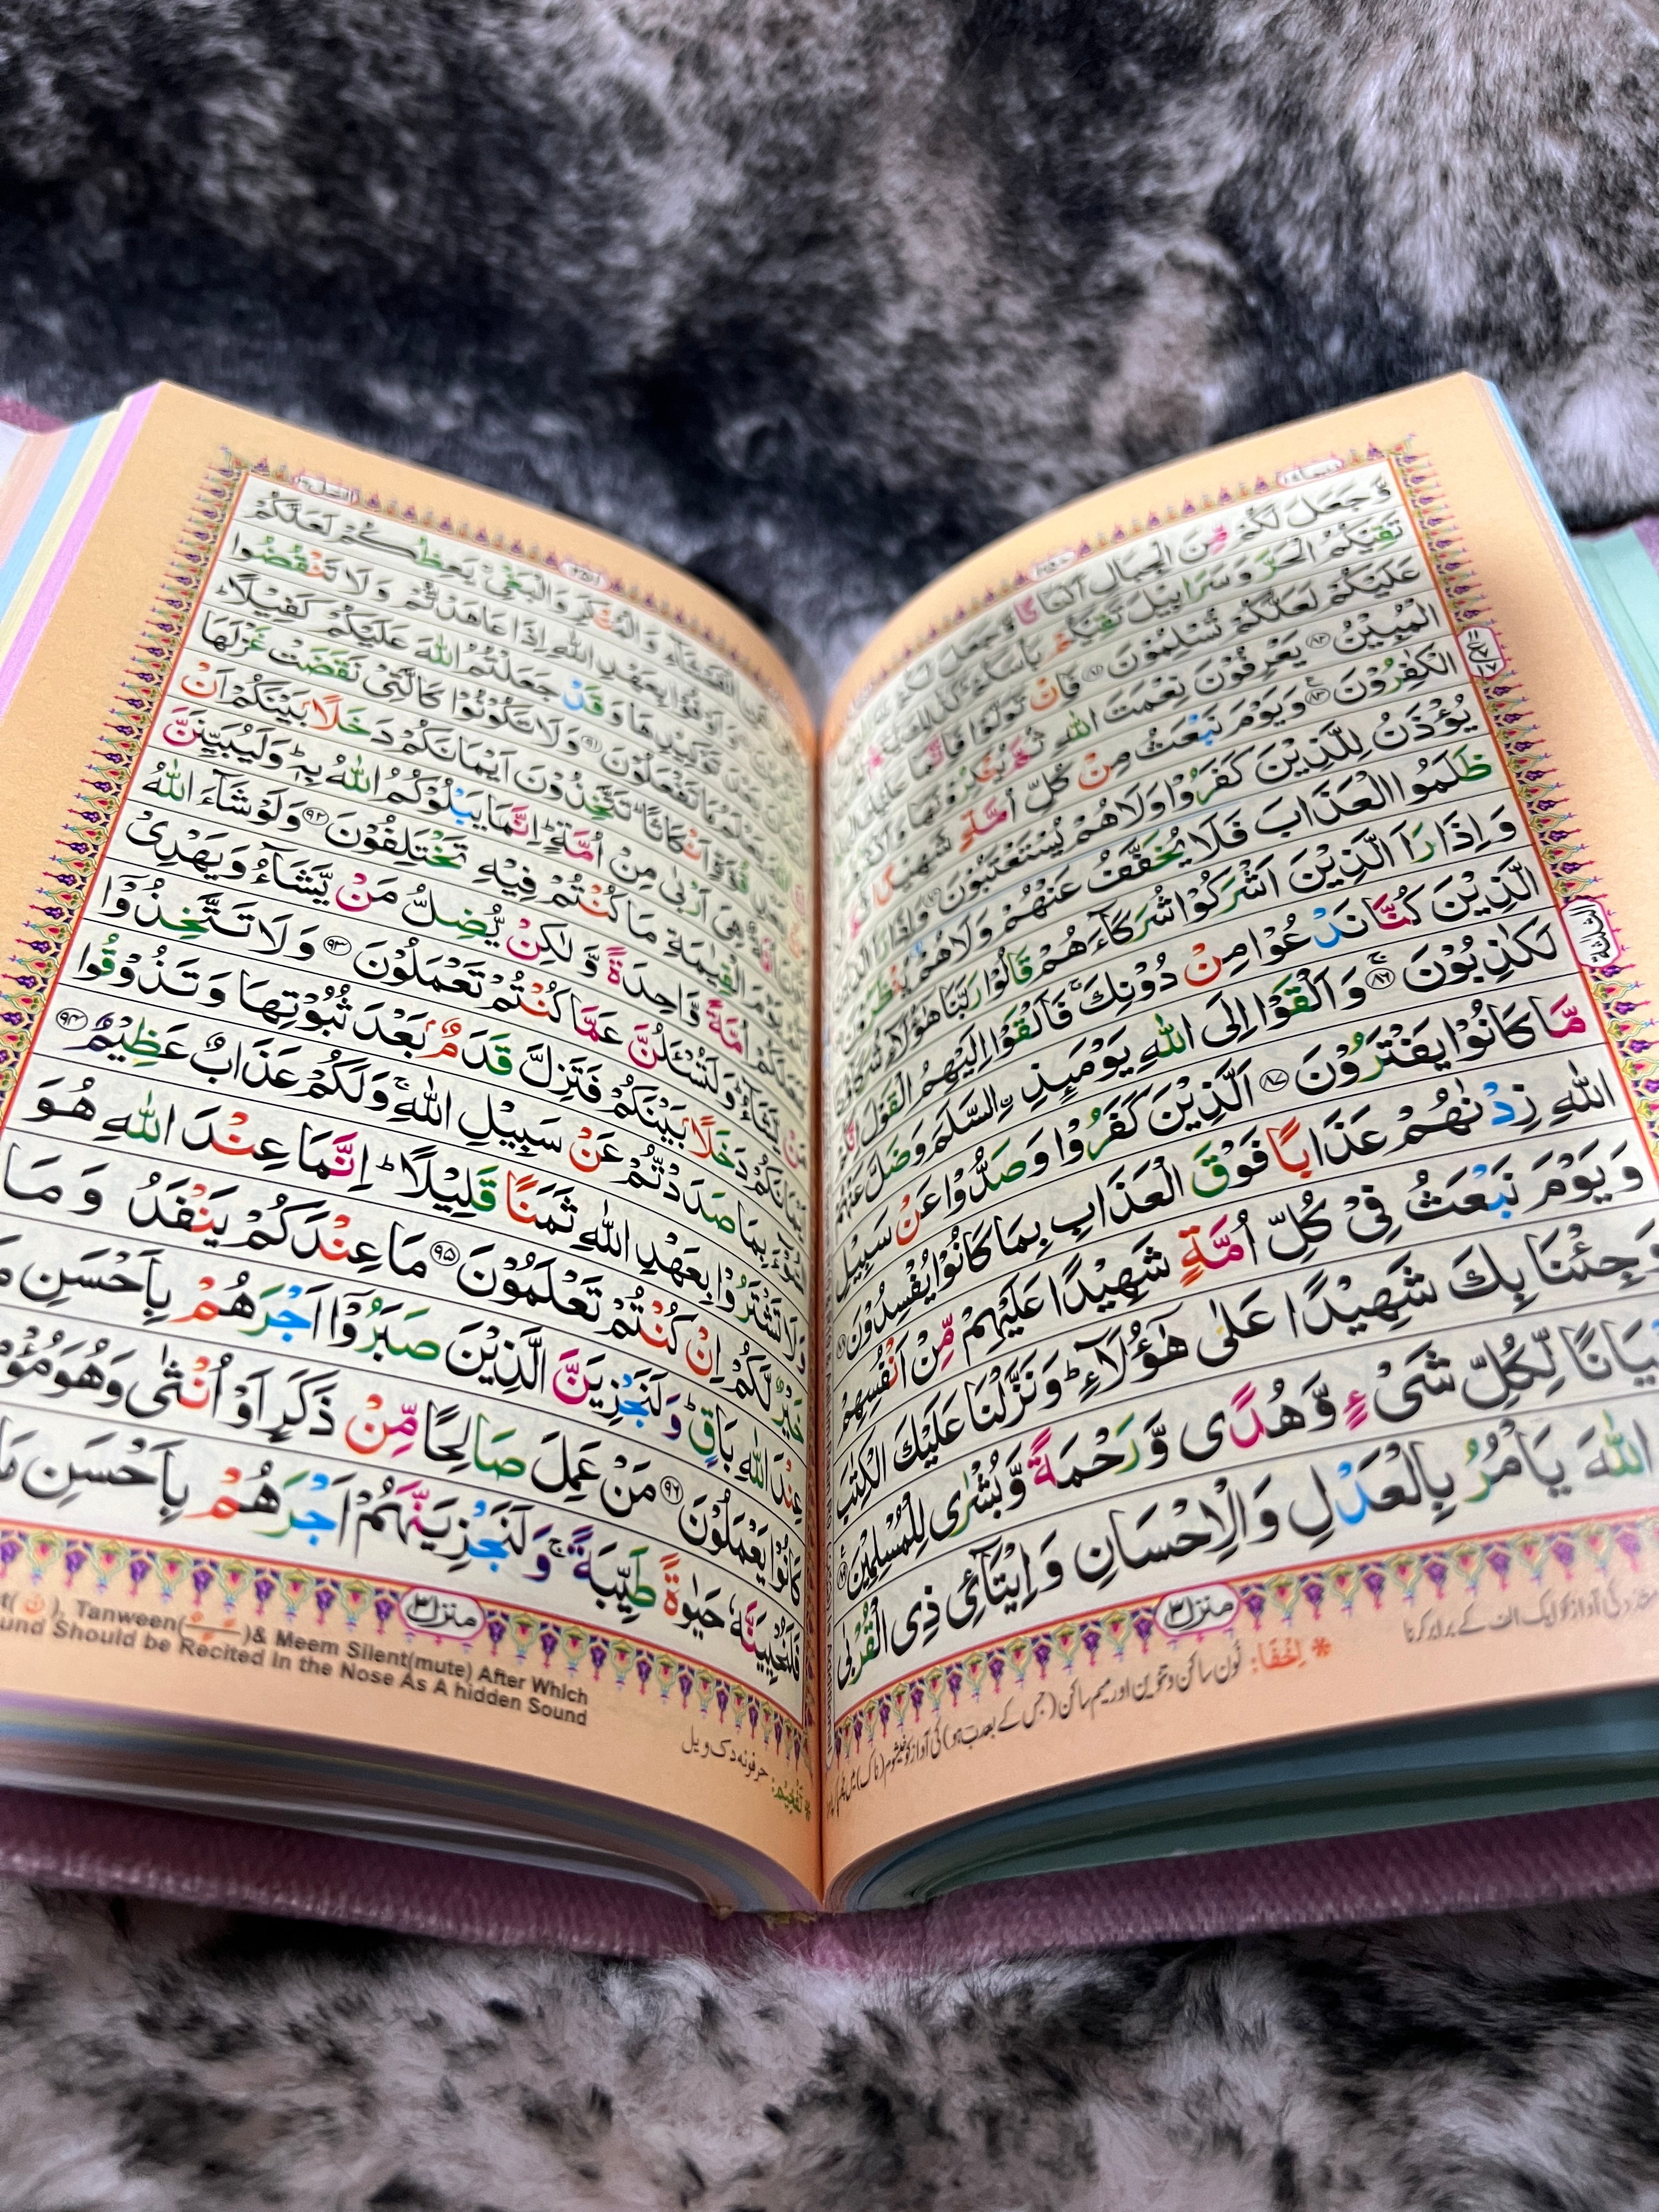 وَّجَعَلَ لَكُمْ مِّنَ الْجِبَالِ اَكْنَانًا وَّجَعَلَ لَكُمْ
تَقِيْكُمُ الْحَرَّ وَسَرَابِيْلَ تَقِيْكُمْ بَاْسَكُمْ ؕ كَذٰلِكَ
عَلَيْكُمْ لَعَلَّكُمْ تُسْلِمُوْنَ فَاِنْ تَوَلَّوْا فَاِنَّمَا عَلَيْكَ
الْمُبِيْنُ يَعْرِفُوْنَ نِعْمَتَ اللّٰهِ ثُمَّ يُنْكِرُوْنَهَا
الْكٰفِرُوْنَ ۸۳ وَيَوْمَ نَبْعَثُ مِنْ كُلِّ اُمَّةٍ شَهِيْدًا
يُؤْذَنُ لِلَّذِيْنَ كَفَرُوْا وَلَا هُمْ يُسْتَعْتَبُوْنَ وَاِذَا رَاَ الَّذِيْنَ
ظَلَمُوا الْعَذَابَ فَلَا يُخَفَّفُ عَنْهُمْ وَلَا هُمْ يُنْظَرُوْنَ
وَاِذَا رَاَ الَّذِيْنَ اَشْرَكُوْا شُرَكَآءَهُمْ قَالُوْا رَبَّنَا هٰٓؤُلَآءِ شُرَكَآؤُنَا
الَّذِيْنَ كُنَّا نَدْعُوْا مِنْ دُوْنِكَ ۚ فَاَلْقَوْا اِلَيْهِمُ الْقَوْلَ اِنَّكُمْ
لَكٰذِبُوْنَ ۸۶ وَاَلْقَوْا اِلَى اللّٰهِ يَوْمَئِذِ ِۨالسَّلَمَ وَضَلَّ عَنْهُمْ
مَّا كَانُوْا يَفْتَرُوْنَ ۸۷ اَلَّذِيْنَ كَفَرُوْا وَصَدُّوْا عَنْ سَبِيْلِ
اللّٰهِ زِدْنٰهُمْ عَذَابًا فَوْقَ الْعَذَابِ بِمَا كَانُوْا يُفْسِدُوْنَ ۸۸
وَيَوْمَ نَبْعَثُ فِيْ كُلِّ اُمَّةٍ شَهِيْدًا عَلَيْهِمْ مِّنْ اَنْفُسِهِمْ
وَجِئْنَا بِكَ شَهِيْدًا عَلٰى هٰٓؤُلَآءِ ؕ وَنَزَّلْنَا عَلَيْكَ الْكِتٰبَ
تِبْيَانًا لِّكُلِّ شَيْءٍ وَّهُدًى وَّرَحْمَةً وَّبُشْرٰى لِلْمُسْلِمِيْنَ ۸۹
اللّٰهَ يَاْمُرُ بِالْعَدْلِ وَالْاِحْسَانِ وَاِيْتَآئِ ذِي الْقُرْبٰى
منزل ۳
* اِخْفَا: نون ساکن و تنوین اور میم ساکن (جس کے بعد ب ہو) کی آواز کو خیشوم (ناک) میں
کی آواز کو ایک الف کے برابر کرنا
الْفَحْشَآءِ وَالْمُنْكَرِ وَالْبَغْيِ ۚ يَعِظُكُمْ لَعَلَّكُمْ
وَاَوْفُوْا بِعَهْدِ اللّٰهِ اِذَا عَاهَدْتُّمْ وَلَا تَنْقُضُوا
تَوْكِيْدِهَا وَقَدْ جَعَلْتُمُ اللّٰهَ عَلَيْكُمْ كَفِيْلًا ؕ
يَعْلَمُ مَا تَفْعَلُوْنَ ۹۱ وَلَا تَكُوْنُوْا كَالَّتِيْ نَقَضَتْ غَزْلَهَا
قُوَّةٍ اَنْكَاثًا ؕ تَتَّخِذُوْنَ اَيْمَانَكُمْ دَخَلًۢا بَيْنَكُمْ اَنْ
هِيَ اَرْبٰى مِنْ اُمَّةٍ ؕ اِنَّمَا يَبْلُوْكُمُ اللّٰهُ بِهٖ ؕ وَلَيُبَيِّنَنَّ
الْقِيٰمَةِ مَا كُنْتُمْ فِيْهِ تَخْتَلِفُوْنَ ۹۲ وَلَوْ شَآءَ اللّٰهُ
لَجَعَلَكُمْ اُمَّةً وَّاحِدَةً وَّلٰكِنْ يُّضِلُّ مَنْ يَّشَآءُ وَيَهْدِيْ
مَنْ يَّشَآءُ ؕ وَلَتُسْـَٔلُنَّ عَمَّا كُنْتُمْ تَعْمَلُوْنَ ۹۳ وَلَا تَتَّخِذُوْٓا
اَيْمَانَكُمْ دَخَلًۢا بَيْنَكُمْ فَتَزِلَّ قَدَمٌۢ بَعْدَ ثُبُوْتِهَا وَتَذُوْقُوا
السُّوْٓءَ بِمَا صَدَدْتُّمْ عَنْ سَبِيْلِ اللّٰهِ ۚ وَلَكُمْ عَذَابٌ عَظِيْمٌ ۹۴
وَلَا تَشْتَرُوْا بِعَهْدِ اللّٰهِ ثَمَنًا قَلِيْلًا ؕ اِنَّمَا عِنْدَ اللّٰهِ هُوَ
خَيْرٌ لَّكُمْ اِنْ كُنْتُمْ تَعْلَمُوْنَ ۹۵ مَا عِنْدَكُمْ يَنْفَدُ وَمَا
عِنْدَ اللّٰهِ بَاقٍ ؕ وَلَنَجْزِيَنَّ الَّذِيْنَ صَبَرُوْٓا اَجْرَهُمْ بِاَحْسَنِ
كَانُوْا يَعْمَلُوْنَ ۹۶ مَنْ عَمِلَ صَالِحًا مِّنْ ذَكَرٍ اَوْ اُنْثٰى وَهُوَ
فَلَنُحْيِيَنَّهٗ حَيٰوةً طَيِّبَةً ۚ وَلَنَجْزِيَنَّهُمْ اَجْرَهُمْ بِاَحْسَنِ
منزل ۳
Tanween( )& Meem Silent(mute) After Which
Should be Recited In the Nose As A hidden Sound
* تفخیم: